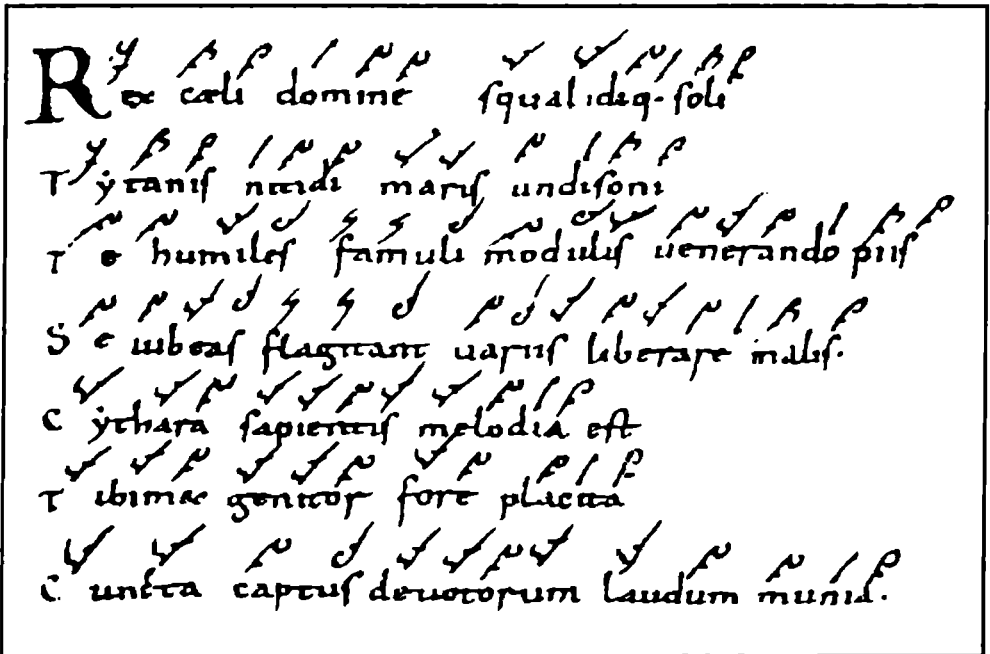 Rex cæli domine squalidiq. soli
Tẏtanis nitidi maris undisoni
Te humiles famuli modulis uenerando piis
Se iubeas flagitant uariis liberare malis.
Cẏthara sapientis melodia est
Tibimæ genitor fore placita
Cuncta captus deuotorum laudum munia.